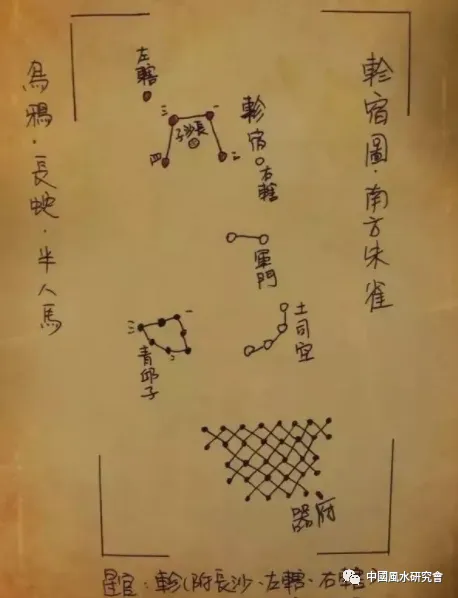 軫宿圖·南方朱雀
烏鴉·長蛇·半人馬
左轄
三
一
四
二
長沙
子
軫宿
右轄
軍門
土司空
三
一
二
青邱子
器府
星官：軫（附長沙、左轄、右轄
中國風水研究會